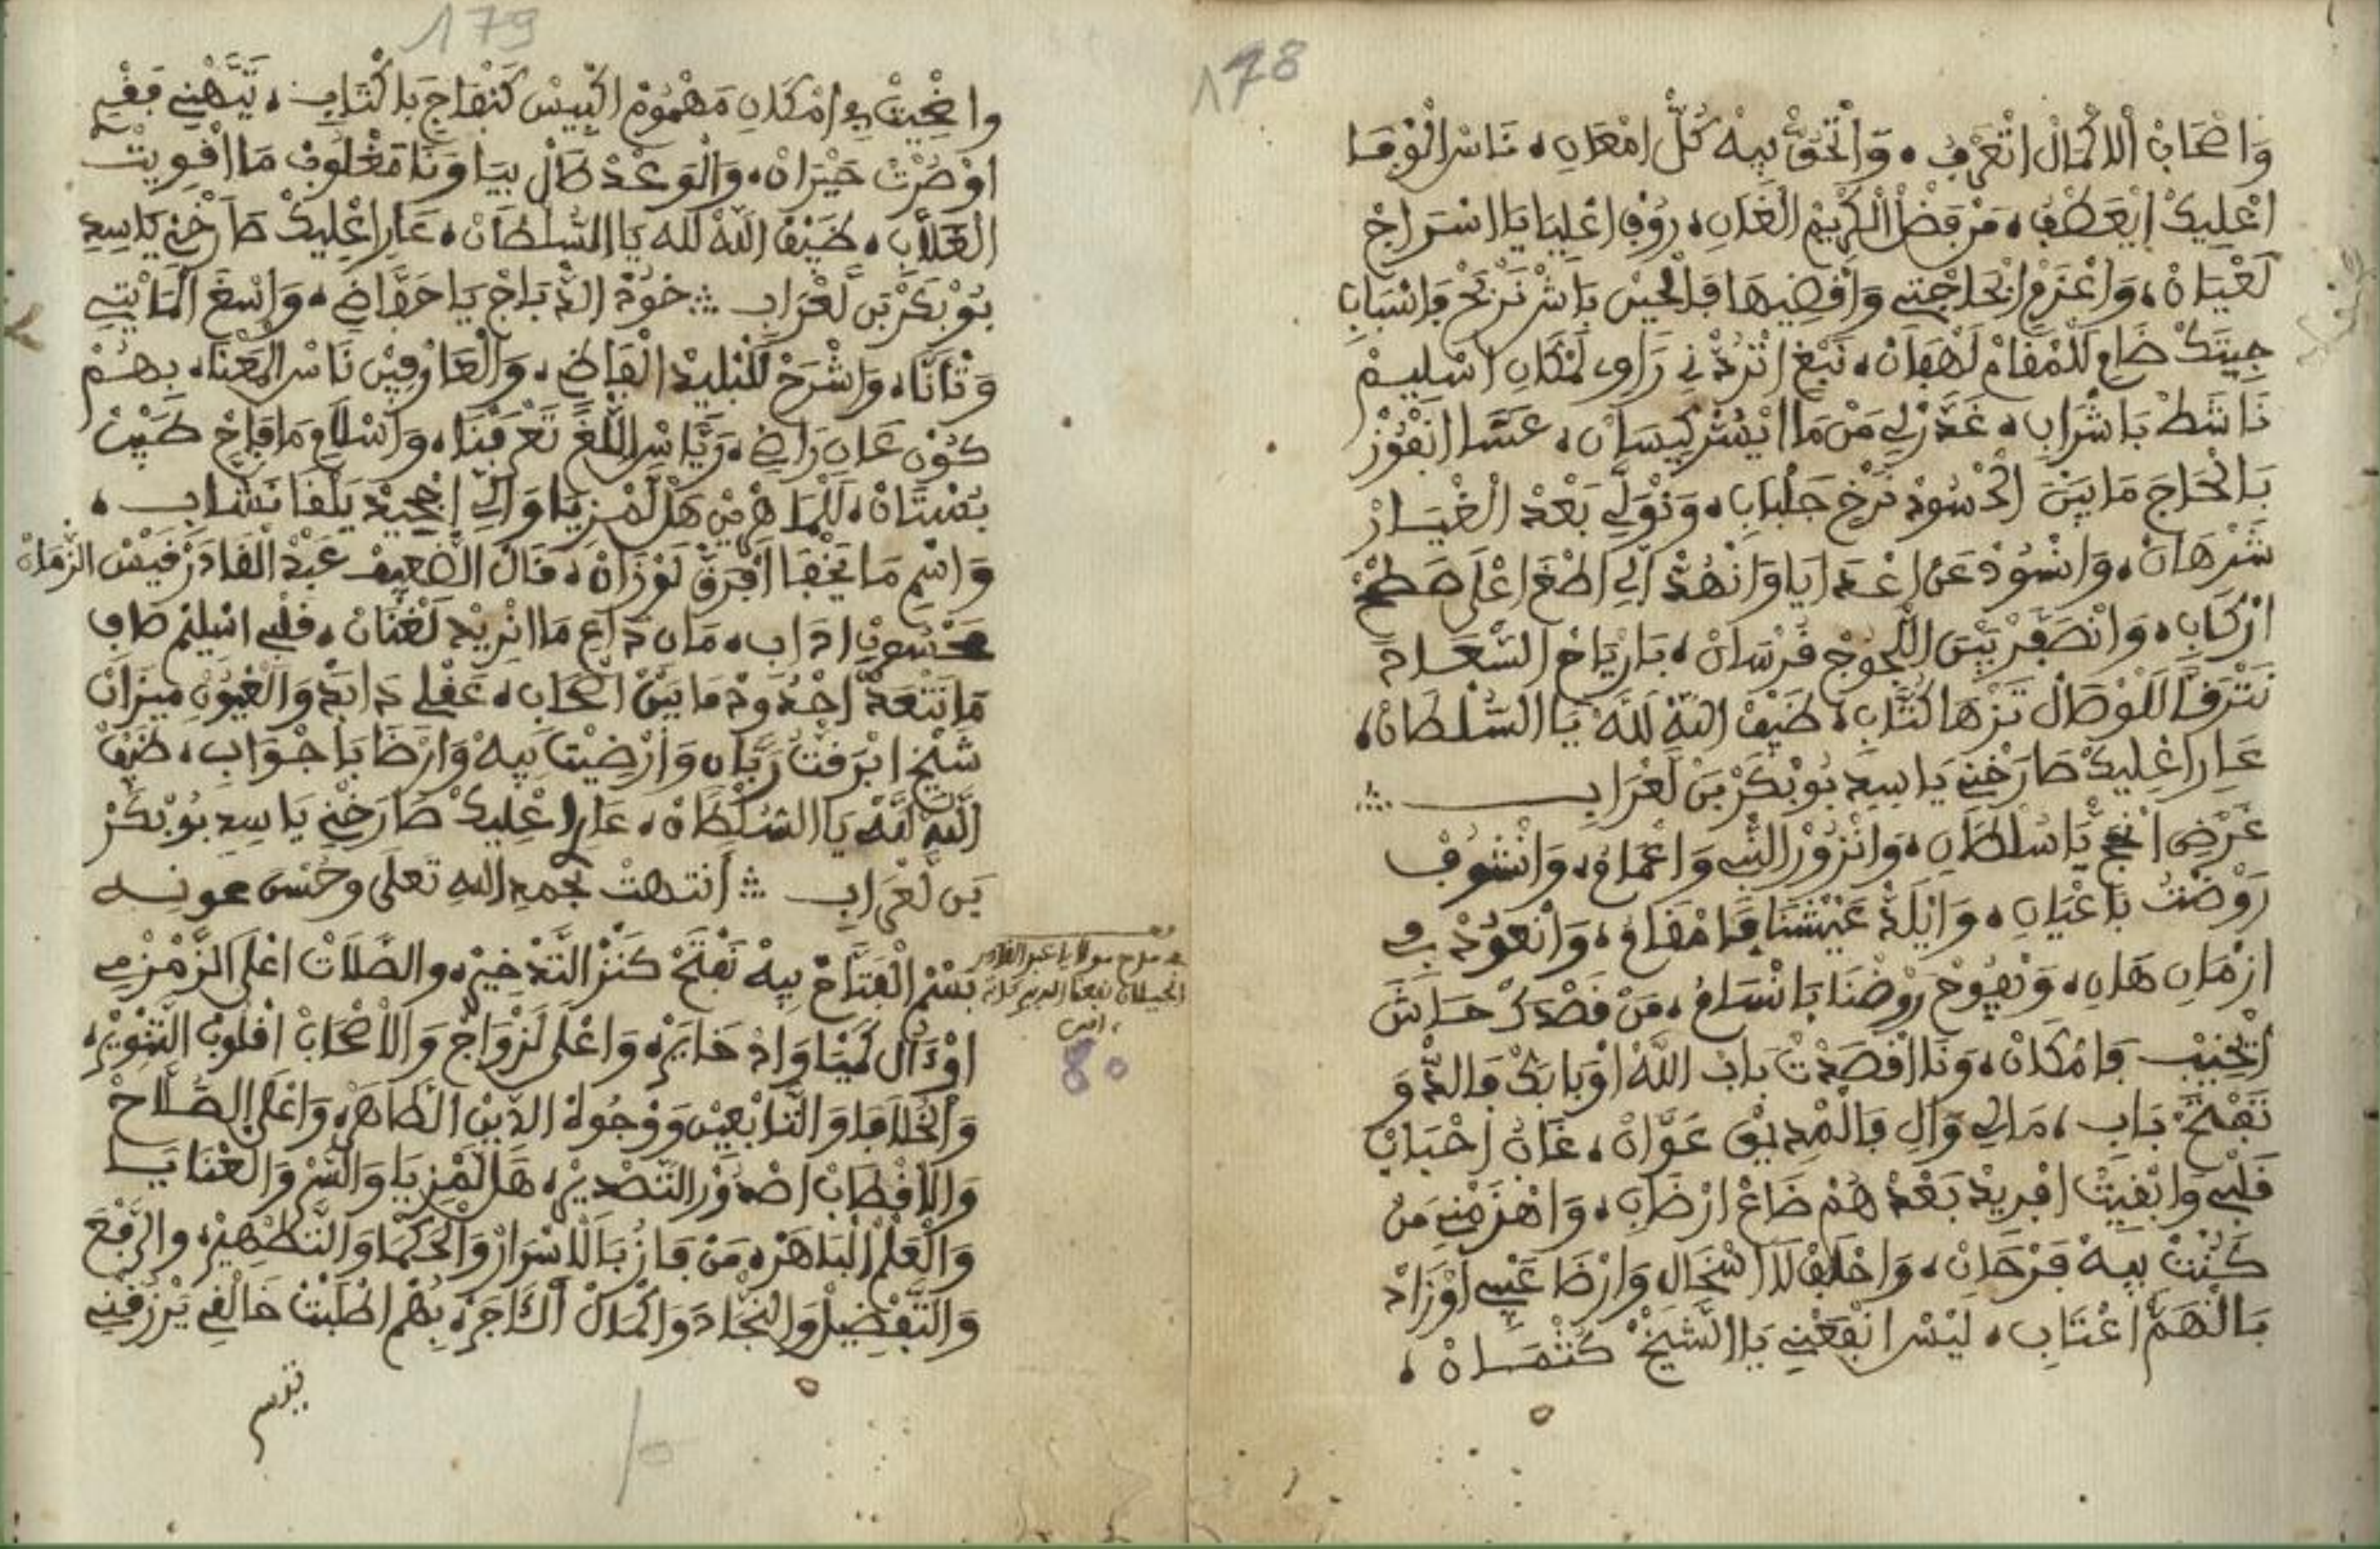 178
وَاصْحَابْ الَاكْمَالْ اتْعَرْفُ، وَاتْحَقَّ بِيهْ كُلّْ امْعَانِ، نَاسْ الْوْفَا
اعْلِيكْ ايْعَطْفُ، مَنْ فَضْلْ الْكْرِيمْ الْغَانِ، رُوْفْ اعْلِيَا يَا اسْرَاجْ
لَعْيَانْ، وَاعْزَمْ الْحَاجْتِي وَاقْضِيهَا فَالْحِينْ بَاشْ نَرْبَحْ فَاسْبَابِ
جِيتَكْ ضَايِ لَلْمْقَامْ لَهْفَانْ، نَبْغِ اتْرُدْنِ رَاوِي لَمْكَانِ اسْلِيمْ
نَاشَطْ بَاشْرَابِ، غَدَّرْلِي مَنْ مَا ايْسُرّْ كِيسَانْ، عَسَّا انْفُوزْ
بَالْحَاجَ مَا بِينْ الْحْسُودْ نَرْخِ جَلْبَابِ، وَنْوَلِّي بَعْدْ الْغْيَارْ
شَرْهَانْ، وَانْسُودْ عَنْ اعْدَايَا وَانْهُدّْ الِّي اطْغَ اعْلَى صَطْحْ
ارْكَابِ، وَانْصَفَّرْ بِينْ اللّْجُوجْ قُرْسَانْ، بَارْيَاحْ السّْعَادَ
نَتْرَقَّا لَلْوْصَالْ تَزْهَا كُتَّابِ، ضَيْفْ اللّهْ لَلَّهْ يَا السُّلْطَانْ،
عَارِ اعْلِيكْ صَارَخْنِي يَا سِيدِ بُوبْكَرْ بَنْ لَعْرَابِ
غَرْضِ انْجِ يَا سُلْطَانِ، وَانْزُورْ النّْبِي وَاعْمَامُ، وَانْشُوفْ
رَوْضْتُ بَاعْيَانِ، وَايْلَذّْ عَيْشْنَا فَامْقَامُ، وَانْعُودْ فِي
ازْمَانِ هَانِ، وَنْفُوحْ رَوْضْنَا بَانْسَامُ، مَنْ قَصْدَكْ حَاشَ
ايْخِيبْ فَامْكَانْ، وَنَا اقْصَدْتْ بَابْ اللَّهْ اوْبَابَكْ فَالدّْوَ
تَفْتَحْ بَابِ، مَالِي وَالِ فَالْمْدِيقْ عَوَّانْ، غَابْ احْبَابْ
قَلْبِي وَابْقِيتْ افْرِيدْ بَعْدْ هُمْ ضَاعْ ارْضَابِ، وَاهْزَمْنِي مَنْ
كَنْتْ بِيهْ فَرْحَانْ، وَاخْلَفْ لَلَانْتْحَالْ وَارْضَا عَنِّي اوْزَادْ
بَالْهَمّْ اعْتَابِ، لِيسْ انْفَعْنِي يَا الشِّيخْ كَتْمَانْ،
179
وَاضْحِيتْ فِي امْكَانِ مَهْمُومْ اكْبِيسْ كَنْفَاجِ بَاكْتَابِ، تَيَّهْنِي فَقْرِ
اوْصُرْتْ حَيْرَانْ، وَالْوَعْدْ طَالْ بِيَا وَنَا مَغْلُوبْ مَا اقْوِيتْ
الْغَلَّابِ، ضَيْفْ اللَّهْ لله يَا السُّلْطَانْ، عَارِ اعْلِيكْ صَارَخْنِي يَا سِيدِ
بُوبْكَرْ بَنْ لَعْرَابِ خُودْ الدّْبَاجْ يَا حَفَّاضِ، وَاسْغَ الْمَايْتِي
وَثَّانَا، وَاشْرَحْ لَلْبْلِيدْ الْفَاضِ، وَالْعَارْفِينْ نَاسْ الْمَعْنَا، بِهُمْ
كُونْ عَانِ رَاضِ، رَيَّاسْ اللّْغَ تَعْرَفْنَا، وَاسْلَامِ مَا فَاحْ طِيبْ
بُسْتَانْ، لَلْمَاهْرِينْ هَلْ لَمْزِيَا وَالِّي اجْحِيدْ يَلْقَا نَشَّابِ،
وَاسْمِ مَا يَخْفَا افْرَقْ لَوْزَانْ، قَالْ الضّْعِيفْ عَبْدْ الْقَادَرْ فَيْسْ الزّْمَانْ
مَا دَاعِ مَا انْرِيدْ لَغْتَانْ، قَلْبِي اسْلِيمْ صَافِ
مَا نَتْعَدّْ احْدُودْ مَا بِينْ اصْحَابِ، عَقْلِ دَابَدْ وَالْغْيُوبْ مِيزَانْ
شَيْخِ ابْرَفْتُ رَبَّانِ وَارْضِيتْ بِيهْ وَارْضَا بَاجْوَابِ، ضَيْفْ
اللَّهْ لَلَّهْ يَا السُّلْطَانْ، عَارِ اعْلِيكْ صَارَخْنِي يَا سِيدِ بُوبْكَرْ
بَن لَعْرَابِ انتهت بحمد الله تعلى وحسن عونه
في مدح مولاي عبد القادر
الجيلاني نفعنا الله ببركاته
امين
80
بَسْمْ الْفَتَّاحْ بِيهْ نَفْتَحْ كَنْزْ التَّدْخِيرْ، والصَّلَاتْ اعْلَى الزَّمْزْمِي
اوْءَالْ كَمْيَاوَادْ خَايَرْ، وَاعْلَى لَزْوَاجْ وَالْأَصْحَابْ اقْلُوبْ التَّنْوِيرْ،
وَالْخُلَافَا وَالتَّابْعِينْ وَوْجُوهْ الدِّينْ الطَّاهَرْ، وَاعْلَى الصُّلَّاحْ
وَالَاقْطَابْ اصْدُورْ التَّصْدِيرْ، هَلْ لَمْزِيَا وَالسّْرْ وَالْعْنَايَا
وَالْعَلْمْ الْبَاهَرْ، مَنْ فَازُ بَالَاسْرَارْ وَالْحَكْمَا وَالتَّطْهِيرْ، والرّْفْعَ
وَالتَّفْضِيلْ وَالنّْجَادَ وَاكْمَالْ الْفَاجَرْ، بِهُمْ اطْلَبْتْ خَالْقِي يَرْزُقْنِي